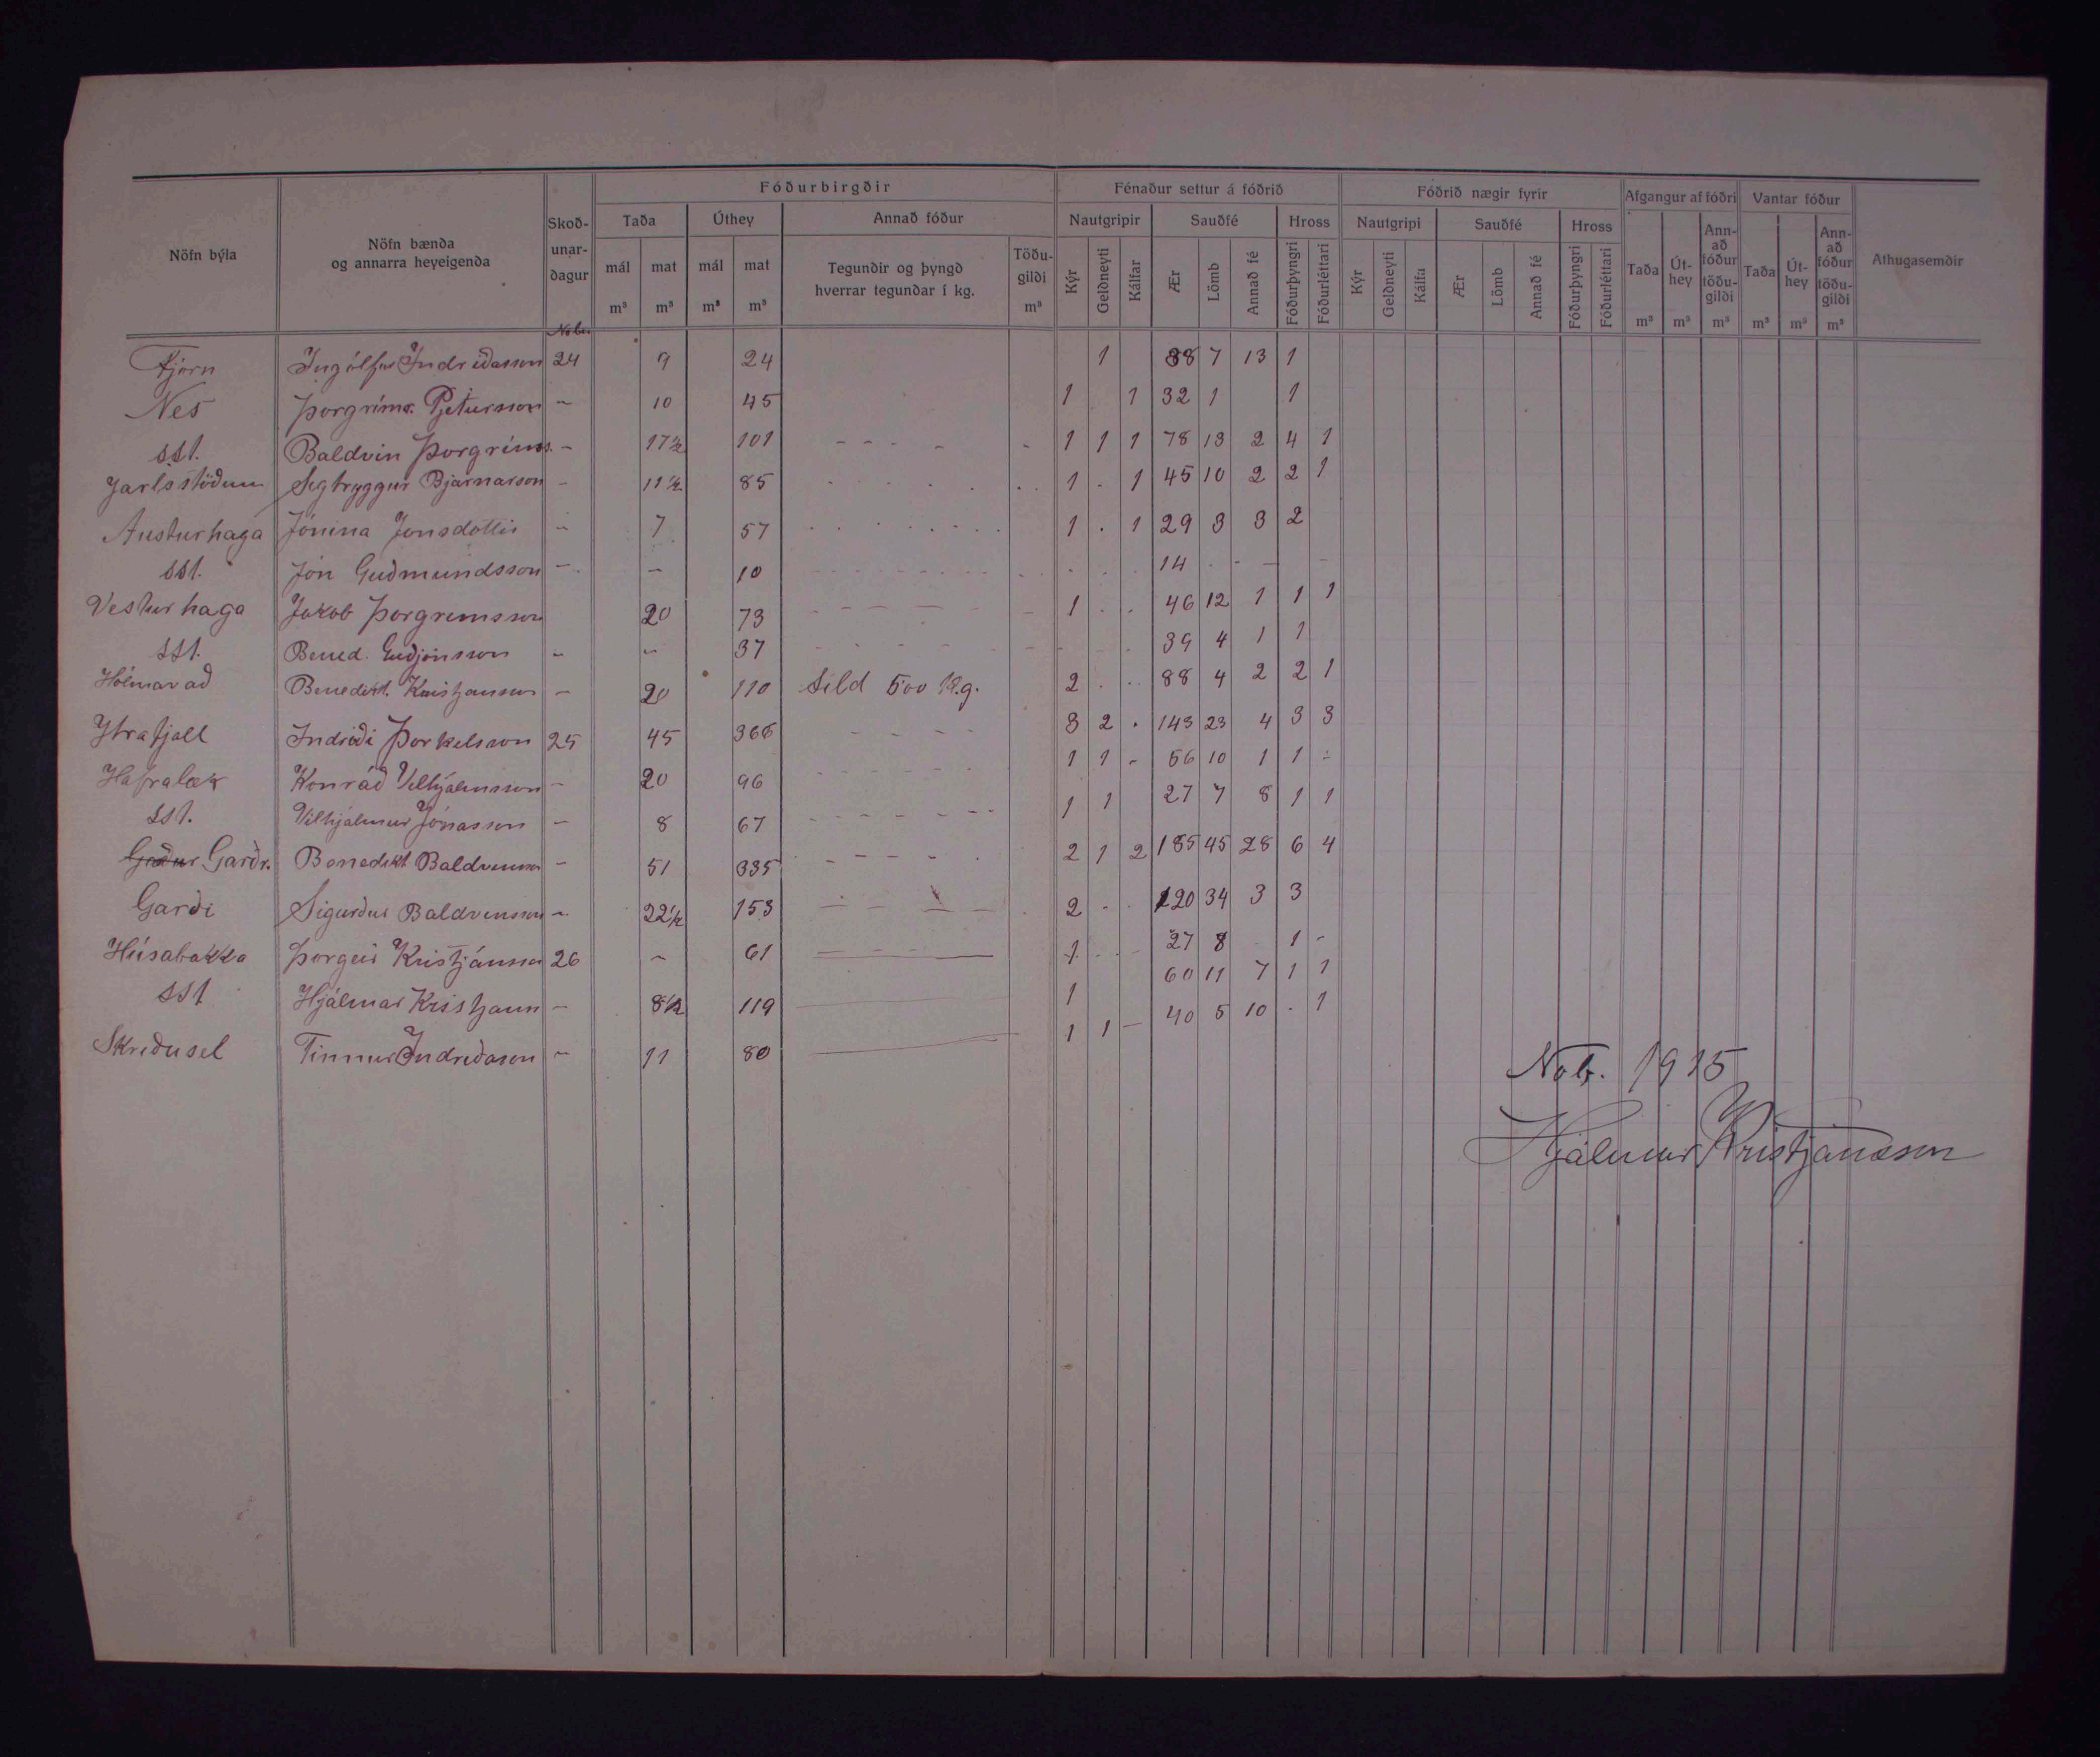 Fóðurbirgðir Fénaður settur á fóðrið Fóðrið nægir fyrir Afgangur af fóðri Vantar fóður
Nöfn býla Nöfn bænda og annarra heyeigenda Skoð-unar-dagur Taða Úthey Annað fóður Nautgripir Sauðfé Hross Nautgripi Sauðfé Hross Athugasemdir
mál m³ mat m³ mál m³ mat m³ Tegundir og þyngd hverrar tegundar í kg. Töðu-gildi m³ Kýr Geldneyti Kálfar Ær Lömb Annað fé Fóðurþyngri Fóðurléttari Kýr Geldneyti Kálfa Ær Lömb Annað fé Fóðurþyngri Fóðurléttari Taða m³ Út-hey m³ Ann-að fóður töðu-gildi m³ Taða m³ Út-hey m³ Ann-að fóður töðu-gildi m³
Nobr.
Tjörn Ingólfur Indriðasson 24 9 24 1 38 7 13 1
Nes Þorgrímr. Pjetursson - 10 45 1 1 32 1 1
sst. Baldvin Þorgríms. - 17½ 101 - - - - - 1 1 1 78 13 2 4 1
Jarlsstöðum Sigtryggur Bjarnarson - 11½ 85 1 - 1 45 10 2 2 1
Austurhaga Jónína Jonsdottir - 7 57 1 . 1 29 3 3 2
sst. Jón Guðmundsson - - 10 14 - - -
Vesturhaga Jakob Þorgrimsson 20 73 1 . . 46 12 1 1 1
sst. Bened. Guðjónsson - - 37 39 4 1 1
Hólmavað Benedikt. Kristjansson - 20 110 Síld 500 kg. 2 . . 88 4 2 2 1
Ytrafjall Indriði Þorkelsson 25 45 366 - - - - 3 2 . 143 23 4 3 3
Hafralæk Konráð Vilhjálmsson - 20 96 1 1 - 56 10 1 1 -
sst. Vilhjálmur Jónasson - 8 67 1 1 27 7 8 1 1
Garðr. Benedikt Baldvinsson - 51 335 - - - - 2 1 2 185 45 28 6 4
Garði Sigurður Baldvinsson - 22½ 153 2 - . 120 34 3 3
Húsabakka Þorgeir Kristjánsson 26 - 61 1 . - 27 8 1 -
sst Hjálmar Kristjann - 8½ 119 1 60 11 7 1 1
Skriðusel Finnur Indriðason - 11 80 1 1 - 40 5 10 . 1
Nobr. 1915
Hjálmar Kristjánsson